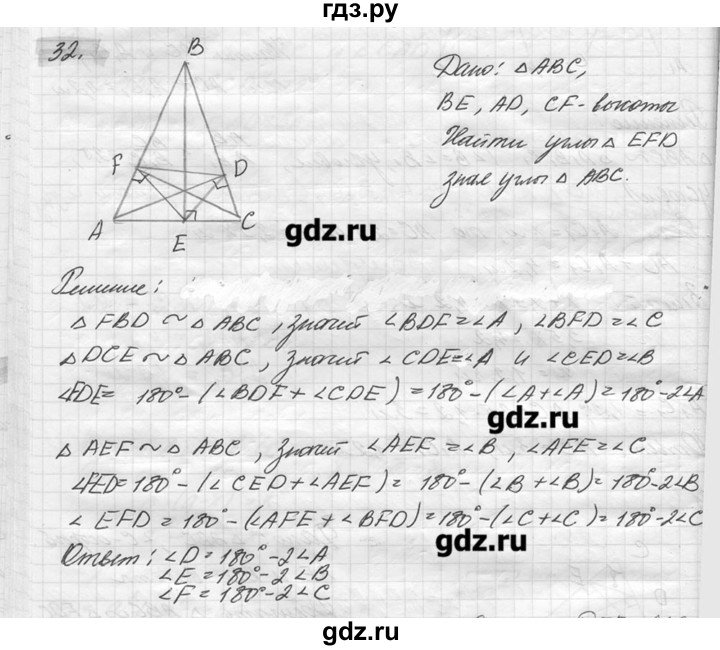 гдз.ру
32.
B
F
D
A
E
C
Дано: △ABC,
BE, AD, CF - высоты
Найти углы △ EFD
зная углы △ ABC.
gdz.ru
Решение:
△ FBD ~ △ ABC, значит ∠BDF = ∠A, ∠BFD = ∠C
△DCE ~ △ ABC, значит ∠ CDE = ∠A и ∠CED = ∠B
∠FDE = 180° - (∠BDF + ∠CDE) = 180° - (∠A + ∠A) = 180° - 2∠A
gdz.ru
△ AEF ~ △ ABC, значит ∠AEF = ∠B, ∠AFE = ∠C
∠FED = 180° - (∠CED + ∠AEF) = 180° - (∠B + ∠B) = 180° - 2∠B
∠ EFD = 180° - (∠AFE + ∠BFD) = 180° - (∠C + ∠C) = 180° - 2∠C
gdz.ru
Ответ: ∠D = 180° - 2∠A
∠E = 180° - 2∠B
∠F = 180° - 2∠C
gdz.ru